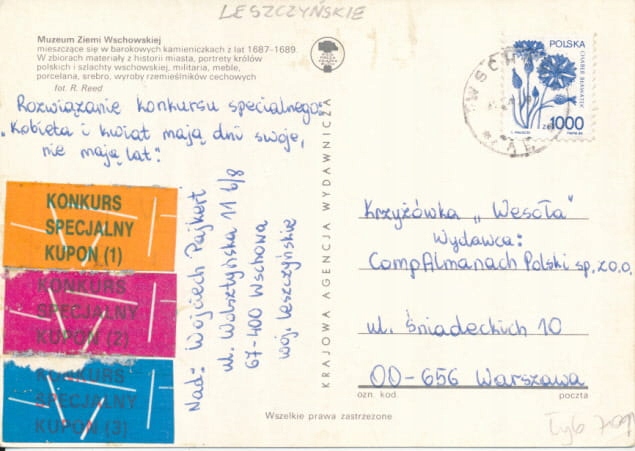 LESZCZYŃSKIE
Muzeum Ziemi Wschowskiej
mieszczące się w barokowych kamieniczkach z lat 1687-1689.
W zbiorach materiały z historii miasta, portrety królów
polskich i szlachty wschowskiej, militaria, meble,
porcelana, srebro, wyroby rzemieślników cechowych
fot. R. Reed
Rozwiązanie konkursu specjalnego:
"Kobieta i kwiat mają dni swoje,
nie mają lat".
KONKURS
SPECJALNY
KUPON (1)
KONKURS
SPECJALNY
KUPON (2)
KONKURS
SPECJALNY
KUPON (3)
Nad: Wojciech Pajkert
ul. Wolsztyńska 11 b/8
67-400 Wschowa
woj. leszczyńskie
KRAJOWA AGENCJA WYDAWNICZA
POLSKA
CHABER BŁAWATEK
ZŁ 1000
WSCHOWA
Krzyżówka "Wesoła"
Wydawca:
CompAlmanach Polski sp. z o.o.
ul. Śniadeckich 10
00-656 Warszawa
ozn. kod. poczta
Wszelkie prawa zastrzeżone